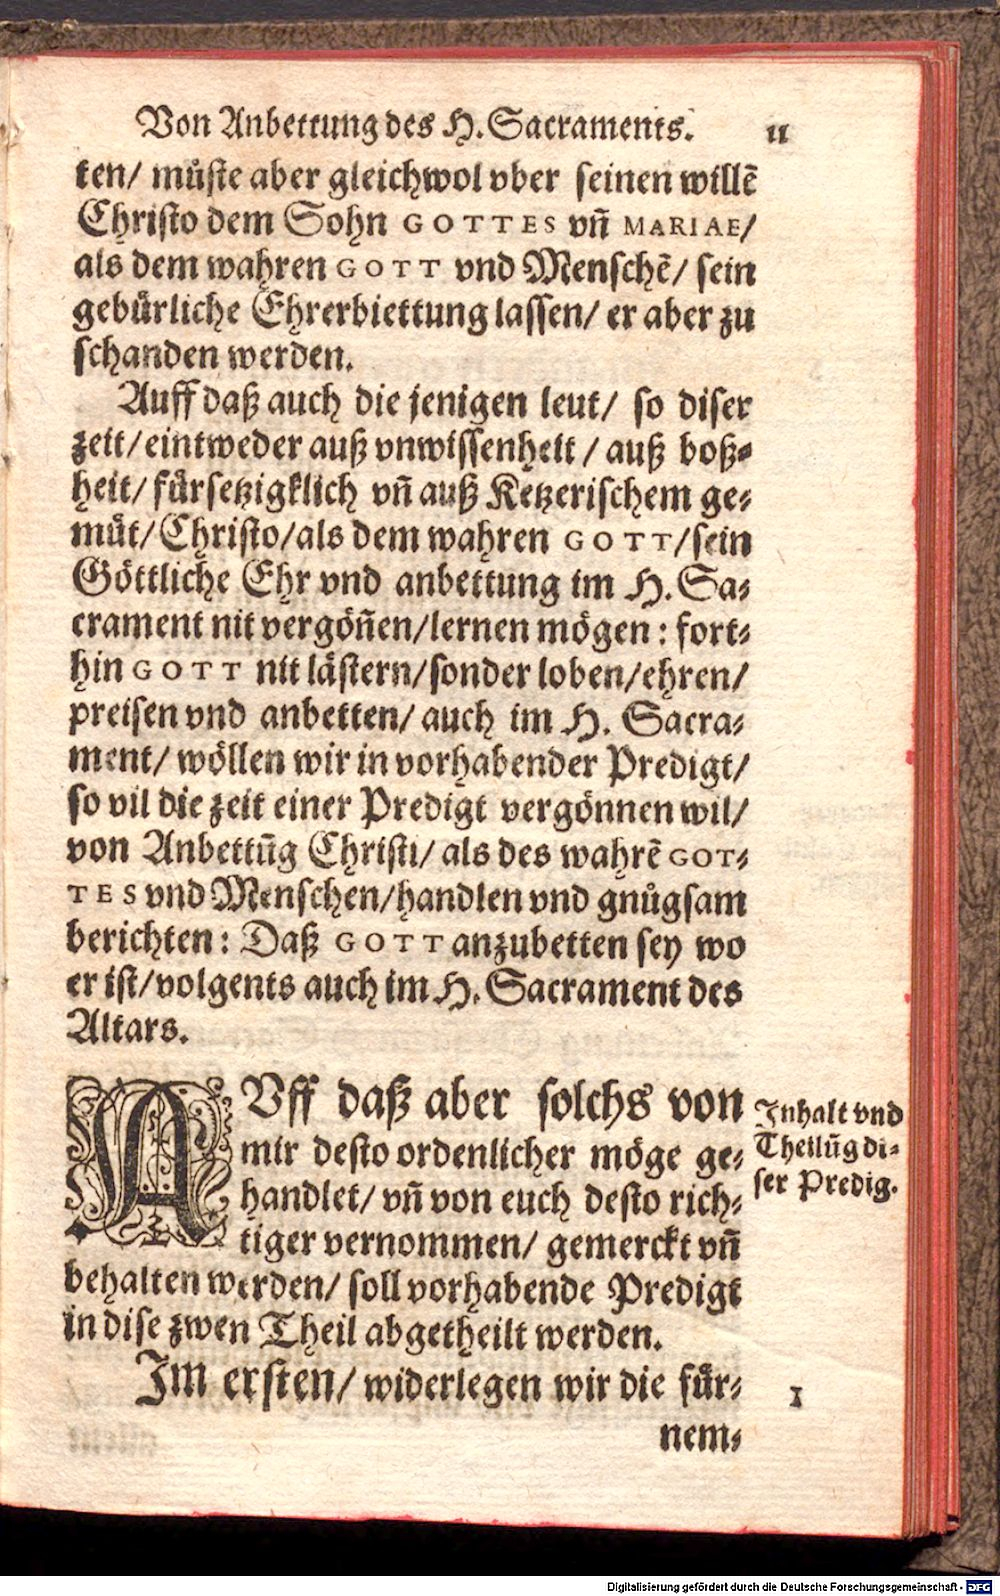 Von Anbettung des H. Sacraments. 11
ten/ müste aber gleichwol vber seinen willē
Christo dem Sohn GOTTES vñ MARIAE/
als dem wahren GOTT vnd Menschē/ sein
gebürliche Ehrerbiettung lassen/ er aber zu
schanden werden.
Auff daß auch die jenigen leut/ so diser
zeit/ eintweder auß vnwissenheit / auß boß-
heit/ fürsetzigklich vñ auß Ketzerischem ge-
müt/ Christo/ als dem wahren GOTT/ sein
Göttliche Ehr vnd anbettung im H. Sa-
crament nit vergöñen/ lernen mögen: fort-
hin GOTT nit lästern/ sonder loben/ ehren/
preisen vnd anbetten/ auch im H. Sacra-
ment/ wöllen wir in vorhabender Predigt/
so vil die zeit einer Predigt vergönnen wil/
von Anbettūg Christi/ als des wahrē GOT-
TES vnd Menschen/ handlen vnd gnůgsam
berichten: Daß GOTT anzubetten sey wo
er ist/ volgents auch im H. Sacrament des
Altars.
AVff daß aber solchs von
mir desto ordenlicher möge ge-
handlet/ vñ von euch desto rich-
tiger vernommen/ gemerckt vñ
behalten werden/ soll vorhabende Predigt
in dise zwen Theil abgetheilt werden.
Inhalt vnd
Theilūg di-
ser Predig.
Im ersten/ widerlegen wir die für-
1
nem-
Digitalisierung gefördert durch die Deutsche Forschungsgemeinschaft - DFG